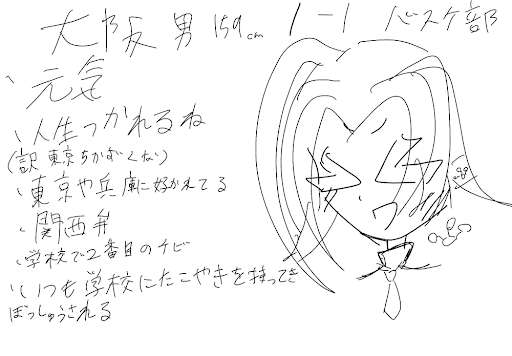 大阪 男 159cm 1-1 バスケ部
、元気
、人生つかれるね
(訳 東京ちかづくな)
、東京や兵庫に好かれてる
、関西弁
、学校で2番目のチビ
、いつも学校にたこやきを持ってき
ぼっしゅうされる